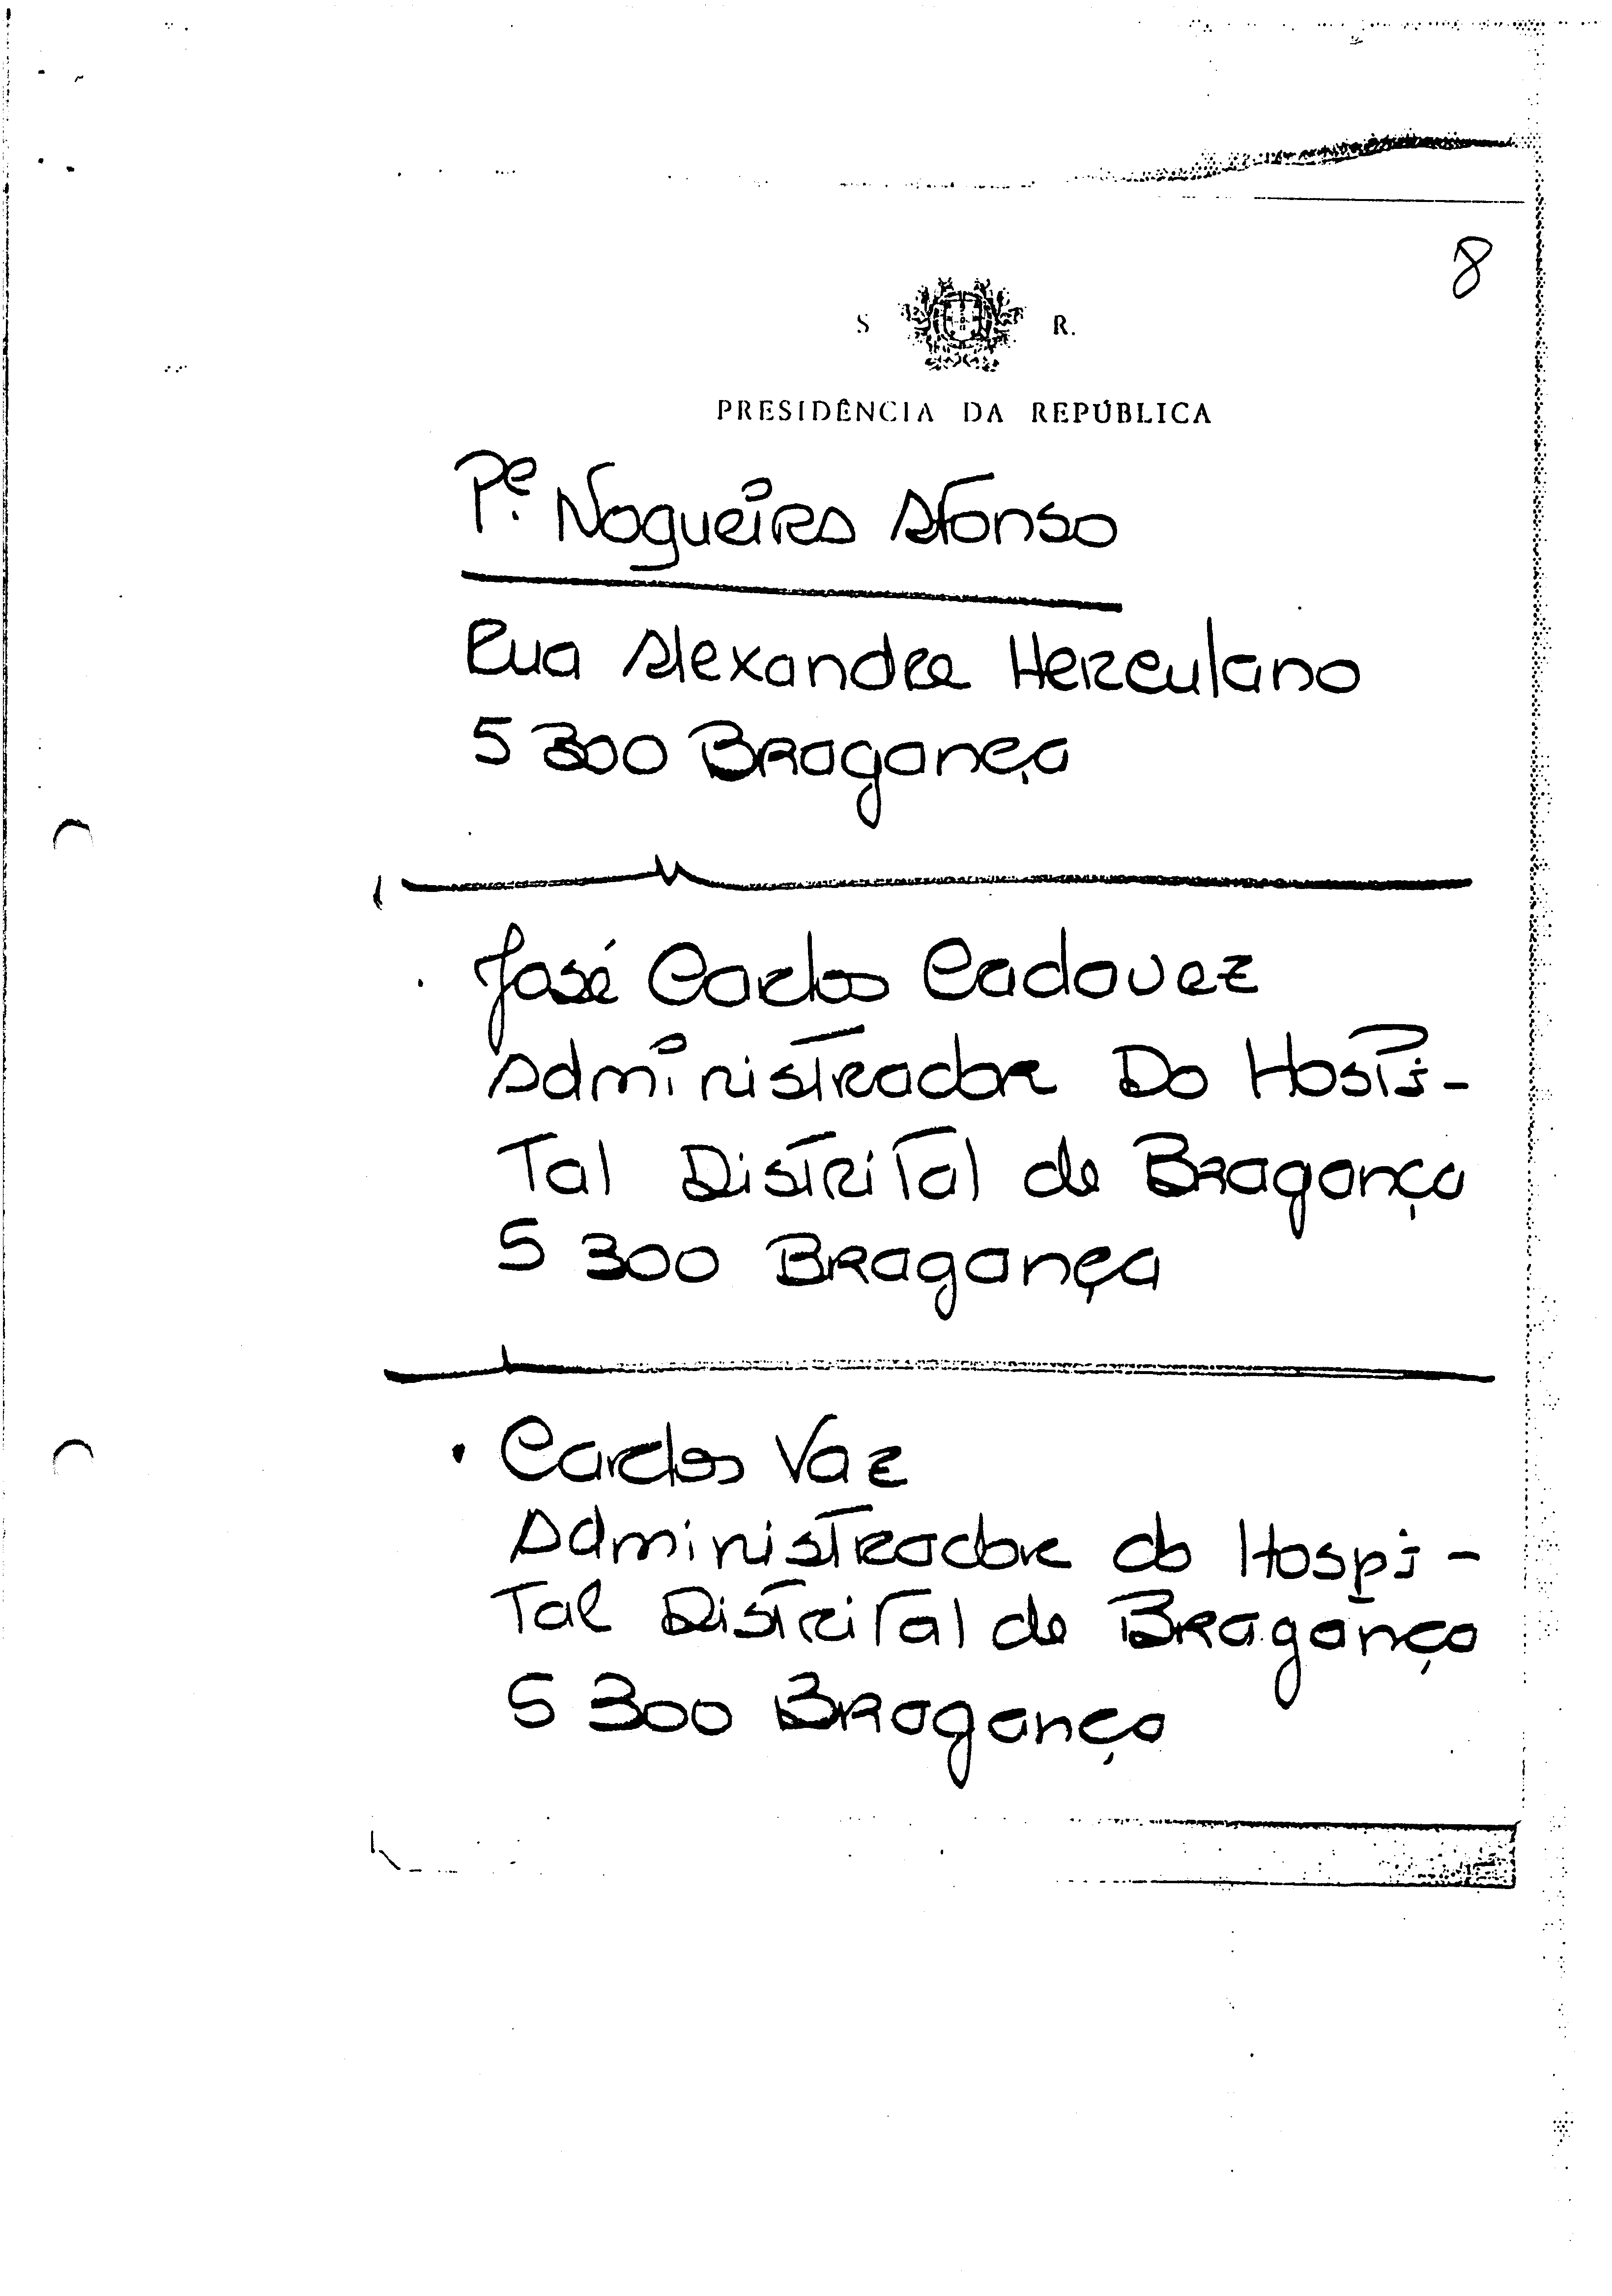 8
S R.
PRESIDÊNCIA DA REPÚBLICA
Pe. Nogueira Afonso
Rua Alexandre Herculano
5300 Bragança
José Carlos Cadavez
Administrador Do Hospi-
Tal Distrital de Bragança
5300 Bragança
• Carlos Vaz
Administrador do Hospi-
Tal Distrital de Bragança
5300 Bragança